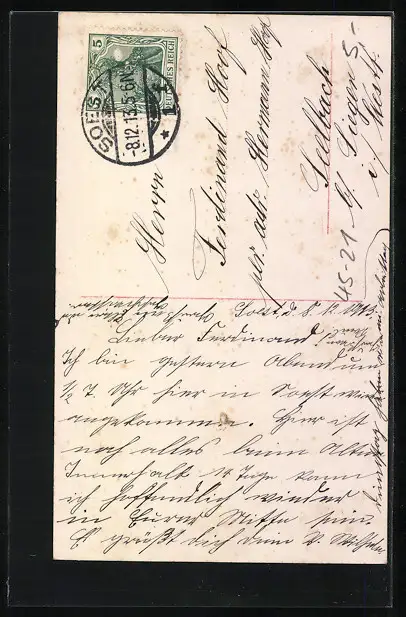 5
DEUTSCHES REICH
SOEST
-8.12.13.5-6N.
Herrn
Ferdinand Hoof
per adr. Hermann Hof
Seelbach
b/ Siegen
i/ Westf.
45-21
Soest, d. 8.12.1913.
Lieber Ferdinand!
Ich bin gestern Abend um
½ 7 Uhr hier in Soest wieder
angekommen. Hier ist
noch alles beim Alten
Innerhalb 14 Tage kann
ich hoffendlich wieder
in Eurer Mitte sein.
Es grüßt dich dein Wilhelm